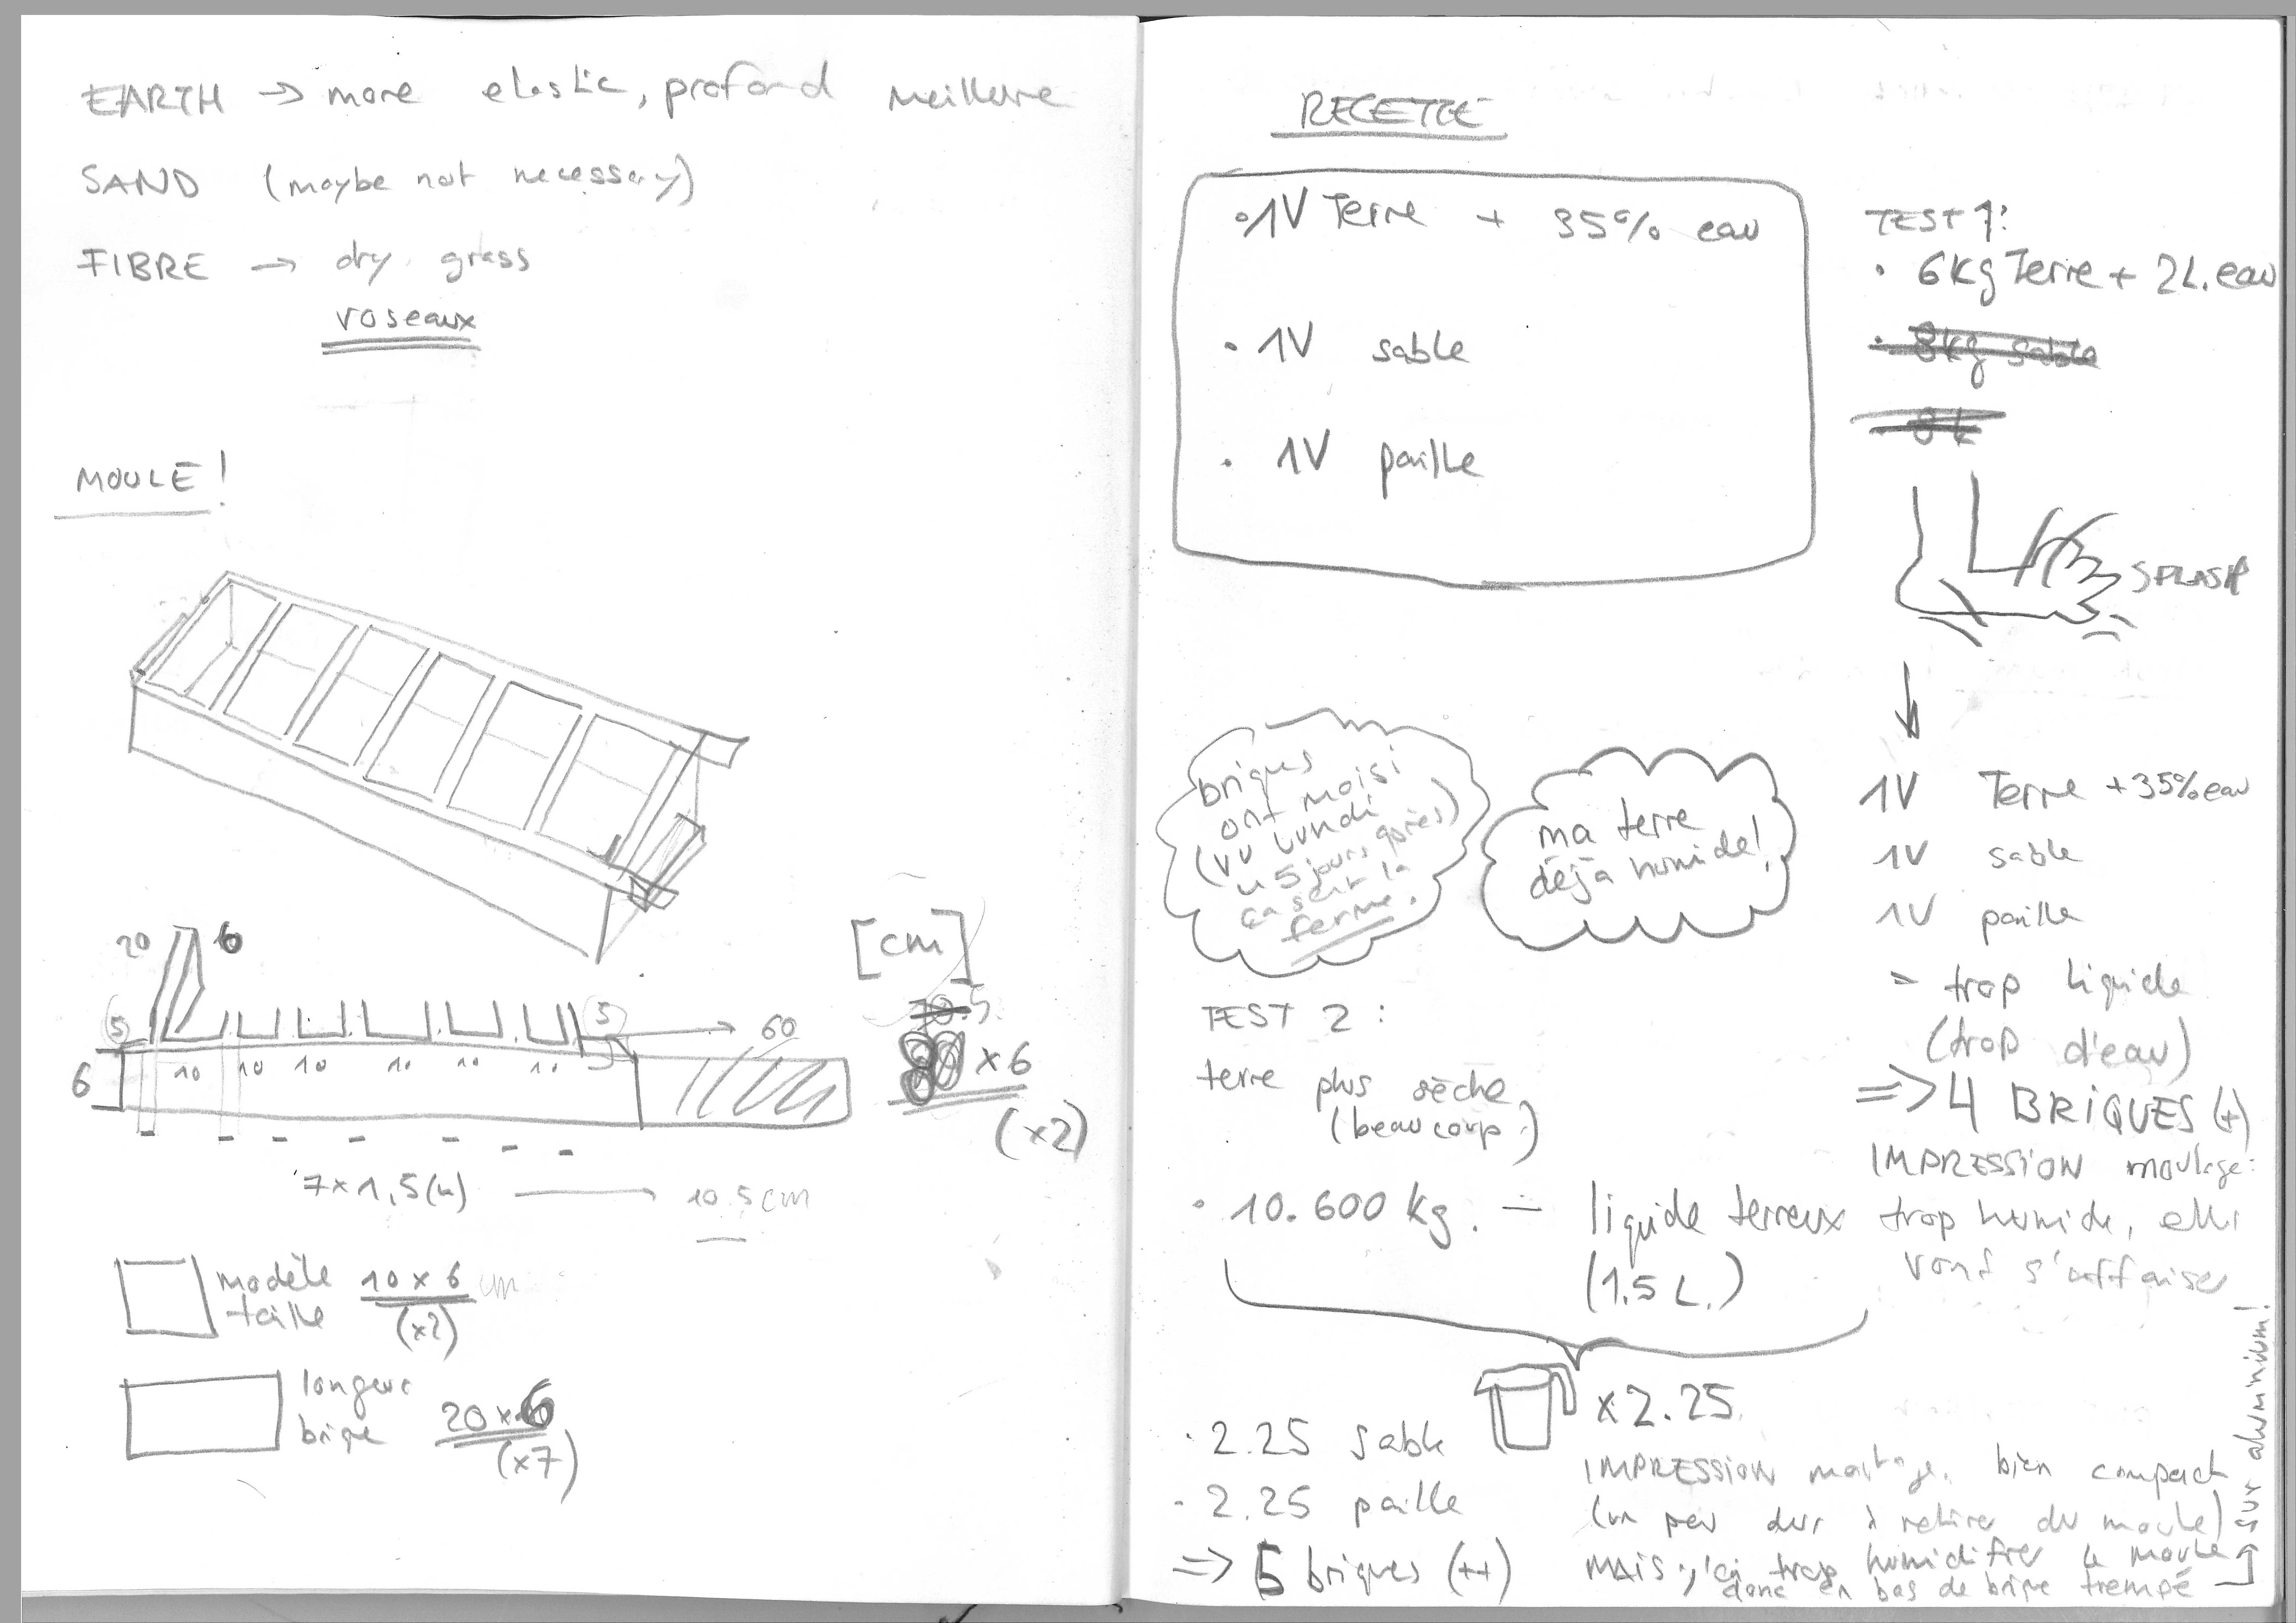 EARTH → more elastic, profond meilleure
SAND (maybe not necessary)
FIBRE → dry grass
roseaux
MOULE!
20 6
[cm]
5 5 → 60
10.5
6 10 10 10 10 10 10
x 6
(x2)
7x1,5(cm) → 10.5 cm
modèle 10 x 6 cm
taille (x2)
longueur
brique 20 x 6
(x7)
RECETTE
• 1V Terre + 35% eau
• 1V sable
• 1V paille
TEST 1:
• 6Kg Terre + 2L. eau
• 8kg sable
8k
SPLASH
↓
1V Terre +35% eau
1V sable
1V paille
= trop liquide
(trop d'eau)
=> 4 BRIQUES (+)
IMPRESSION moulage:
trop humide, elles
vont s'affaiser
briques
ont moisi
(vu lundi
5 jours après)
ça sent la
ferme.
ma terre
déjà humide!
TEST 2 :
terre plus sèche
(beaucoup)
• 10.600 kg. liquide terreux
(1.5 L.)
x 2.25
• 2.25 sable
• 2.25 paille
=> 5 briques (++)
IMPRESSION moulage, bien compact
(un peu dur à retirer du moule)
MAIS, j'ai trop humidifier le moule
donc en bas de brique trempé
sur aluminium!